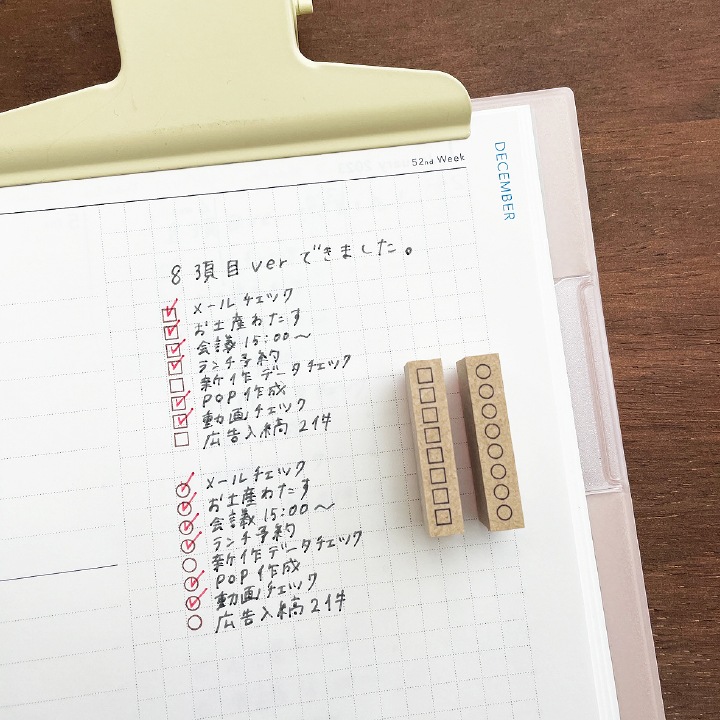 52nd Week
DECEMBER
8項目verできました。
メールチェック
お土産わたす
会議15:00〜
ランチ予約
新作データチェック
POP作成
動画チェック
広告入稿2件
メールチェック
お土産わたす
会議15:00〜
ランチ予約
新作データチェック
POP作成
動画チェック
広告入稿2件